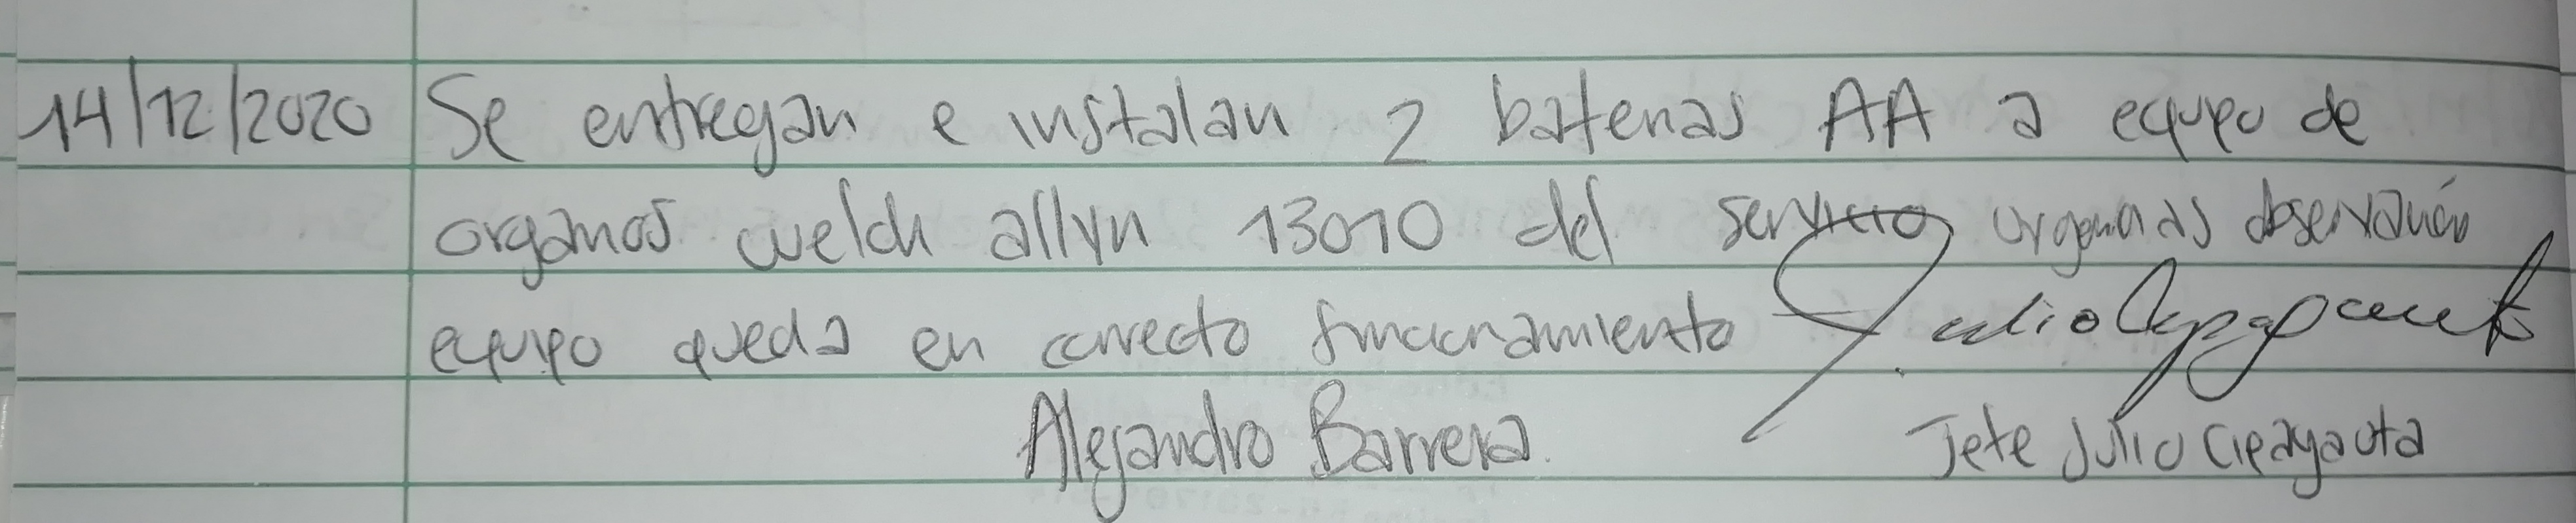 14/12/2020 Se entregan e instalan 2 baterias AA a equipo de
organos welch allyn 13010 del servicio urgencias observación
equipo queda en correcto funcionamiento
Alejandro Barrera. Jefe Julio Cipagauta